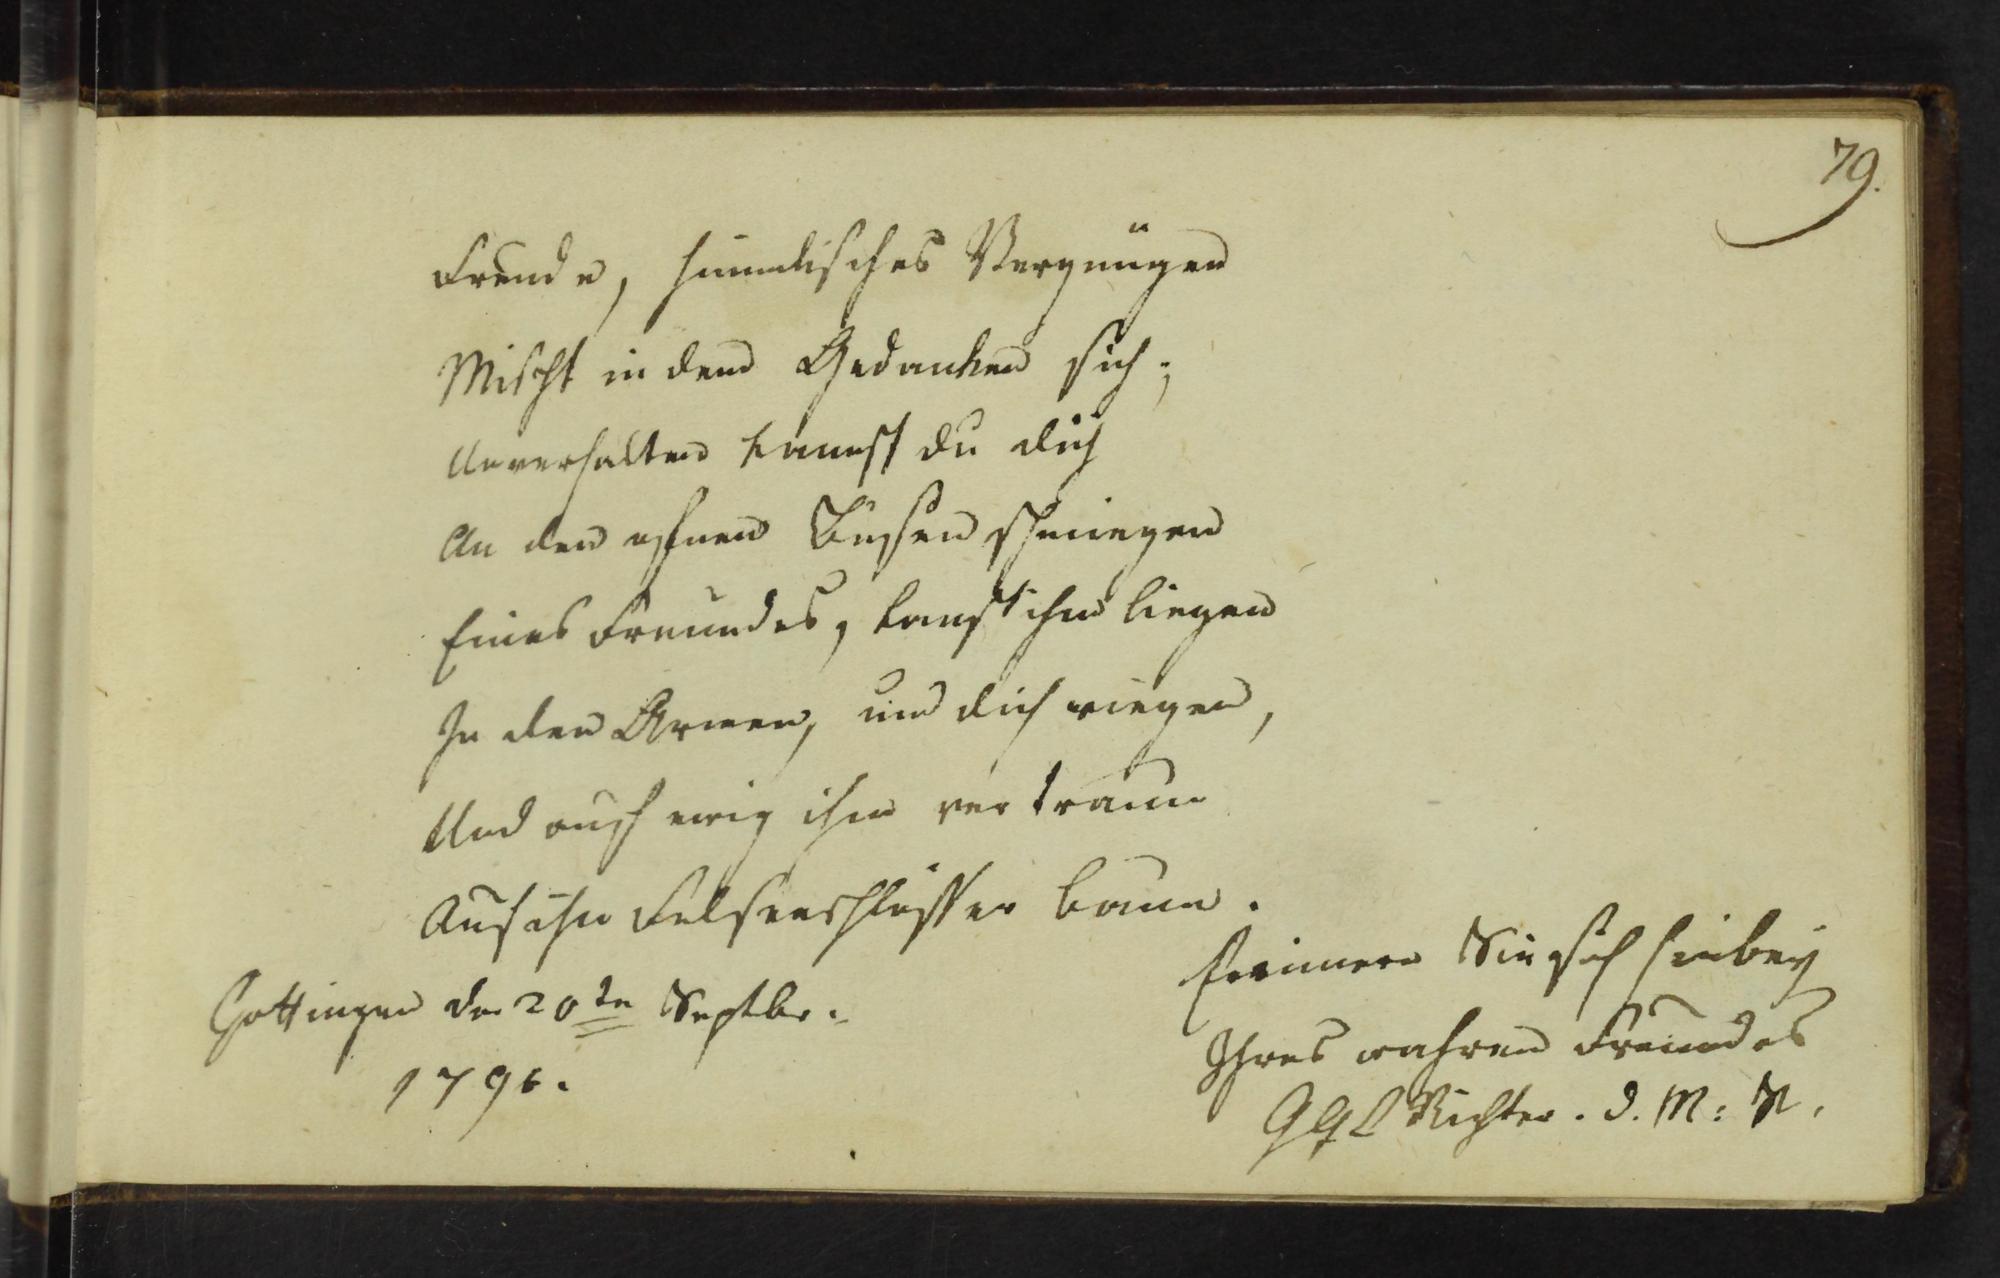 79.
Freude, himmlisches Vergnügen
Mischt in dem Gedanken sich;
Unverhalten kannst du dich
An den ofnen Busen schmiegen
Eines Freundes, kanst ihm liegen
In den Armen, um dich wiegen,
Und auch ewig ihm vertraun
Auf ihn Felsenschlösser baun.
Gottingen den 20ten Septbr.
1796.
Erinnern Sie sich hiebey
Ihres wahren Freundes
Richter. d. M: